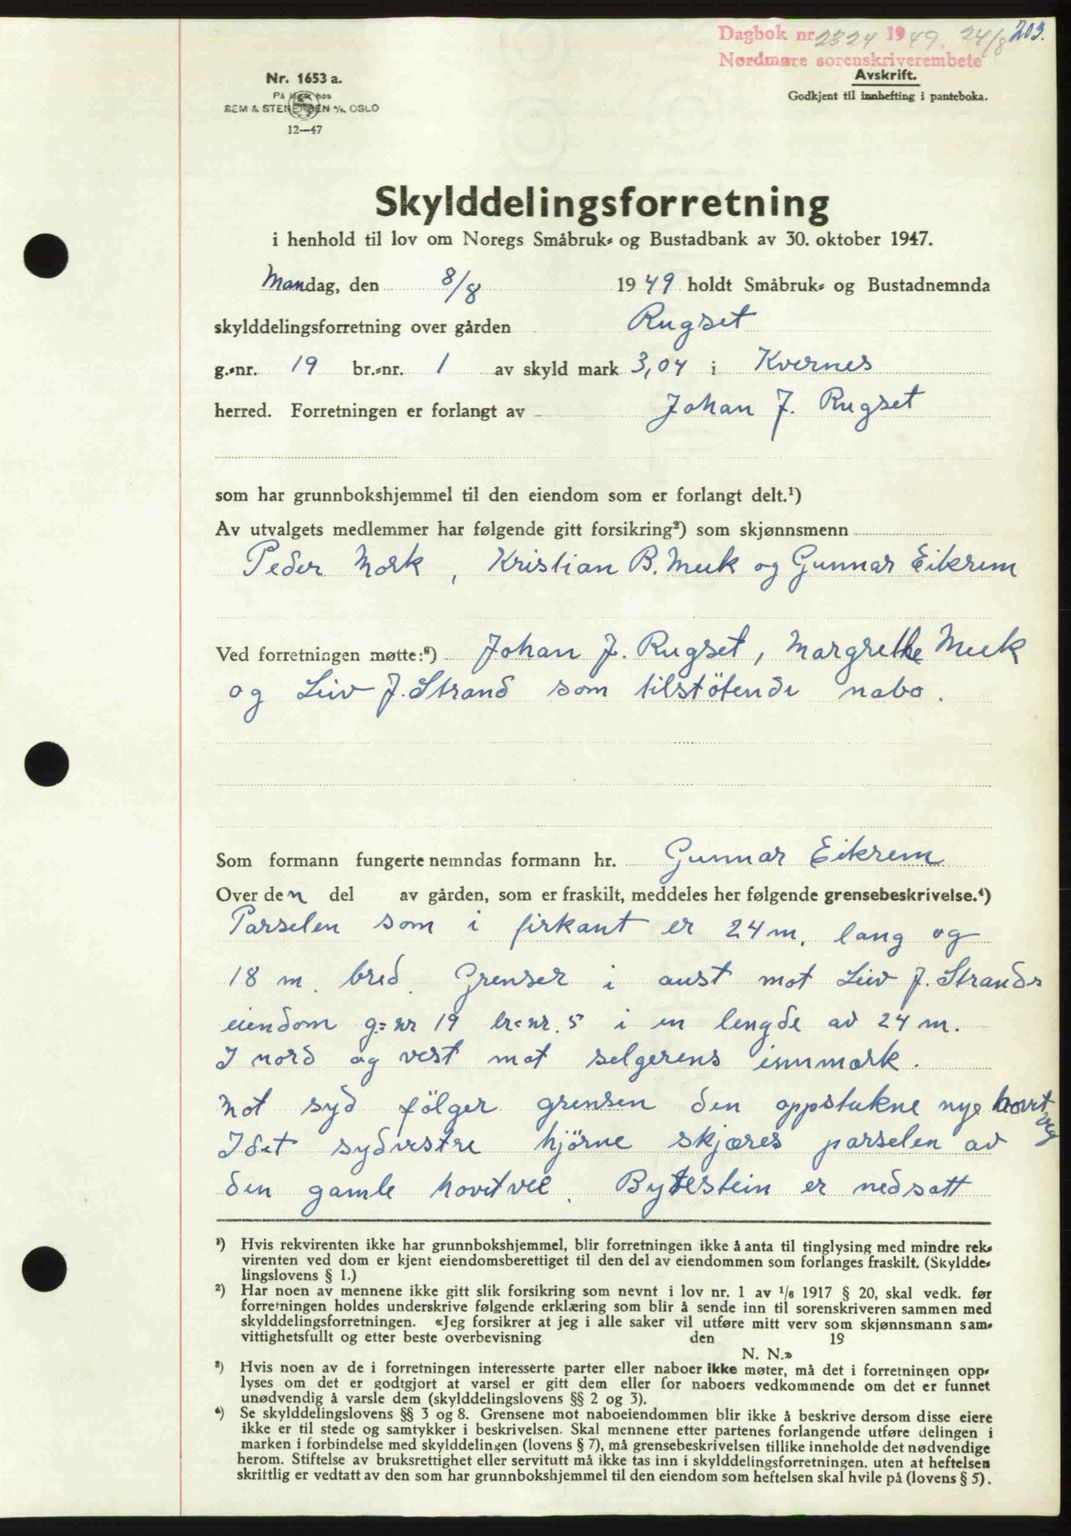 Dagbok nr. 2324 1949. 24/8 203.
Nordmøre sorenskriverembete
Nr. 1653 a.
På lager hos
SEM & STENERSEN A/S. OSLO
12—47
Avskrift.
Godkjent til innhefting i panteboka.
Skylddelingsforretning
i henhold til lov om Noregs Småbruk- og Bustadbank av 30. oktober 1947.
Mandag, den 8/8 1949 holdt Småbruk- og Bustadnemnda
skylddelingsforretning over gården Rugset
g.-nr. 19 br.-nr. 1 av skyld mark 3,04 i Kvernes
herred. Forretningen er forlangt av Johan J. Rugset
som har grunnbokshjemmel til den eiendom som er forlangt delt.¹)
Av utvalgets medlemmer har følgende gitt forsikring²) som skjønnsmenn
Peder Mork, Kristian B. Meek og Gunnar Eikrem
Ved forretningen møtte:³) Johan J. Rugset, Margrethe Meek
og Liv J. Strand som tilstötende nabo.
Som formann fungerte nemndas formann hr. Gunnar Eikrem
Over den del av gården, som er fraskilt, meddeles her følgende grensebeskrivelse.⁴)
Parselen som i firkant er 24 m. lang og
18 m. bred. Grenser i aust mot Liv J. Strands
eiendom g.nr 19 br.nr. 5 i en lengde av 24 m.
I nord og vest mot selgerens innmark.
Mot syd fölger grensen den oppstukne nye hovitveg
I det sydvestre hjörne skjæres parselen av
den gamle hovitvei. Bytestein er nedsatt
¹) Hvis rekvirenten ikke har grunnbokshjemmel, blir forretningen ikke å anta til tinglysing med mindre rek-
virenten ved dom er kjent eiendomsberettiget til den del av eiendommen som forlanges fraskilt. (Skyldde-
lingslovens § 1.)
²) Har noen av mennene ikke gitt slik forsikring som nevnt i lov nr. 1 av 1/6 1917 § 20, skal vedk. før
forretningen holdes underskrive følgende erklæring som blir å sende inn til sorenskriveren sammen med
skylddelingsforretningen. «Jeg forsikrer at jeg i alle saker vil utføre mitt verv som skjønnsmann sam-
vittighetsfullt og etter beste overbevisning den 19
N. N.»
³) Hvis noen av de i forretningen interesserte parter eller naboer ikke møter, må det i forretningen opp-
lyses om det er godtgjort at varsel er gitt dem eller for naboers vedkommende om det er funnet
unødvendig å varsle dem (skylddelingslovens §§ 2 og 3).
⁴) Se skylddelingslovens §§ 3 og 8. Grensene mot naboeiendommen blir ikke å beskrive dersom disse eiere
ikke er til stede og samtykker i beskrivelsen. Skal mennene etter partenes forlangende utføre delingen i
marken i forbindelse med skylddelingen (lovens § 7), må grensebeskrivelsen tillike inneholde det nødvendige
herom. Stiftelse av bruksrettighet eller servitutt må ikke tas inn i skylddelingsforretningen. uten at heftelsen
skriftlig er vedtatt av den som har grunnbokshjemmel til den eiendom som heftelsen skal hvile på (lovens § 5).